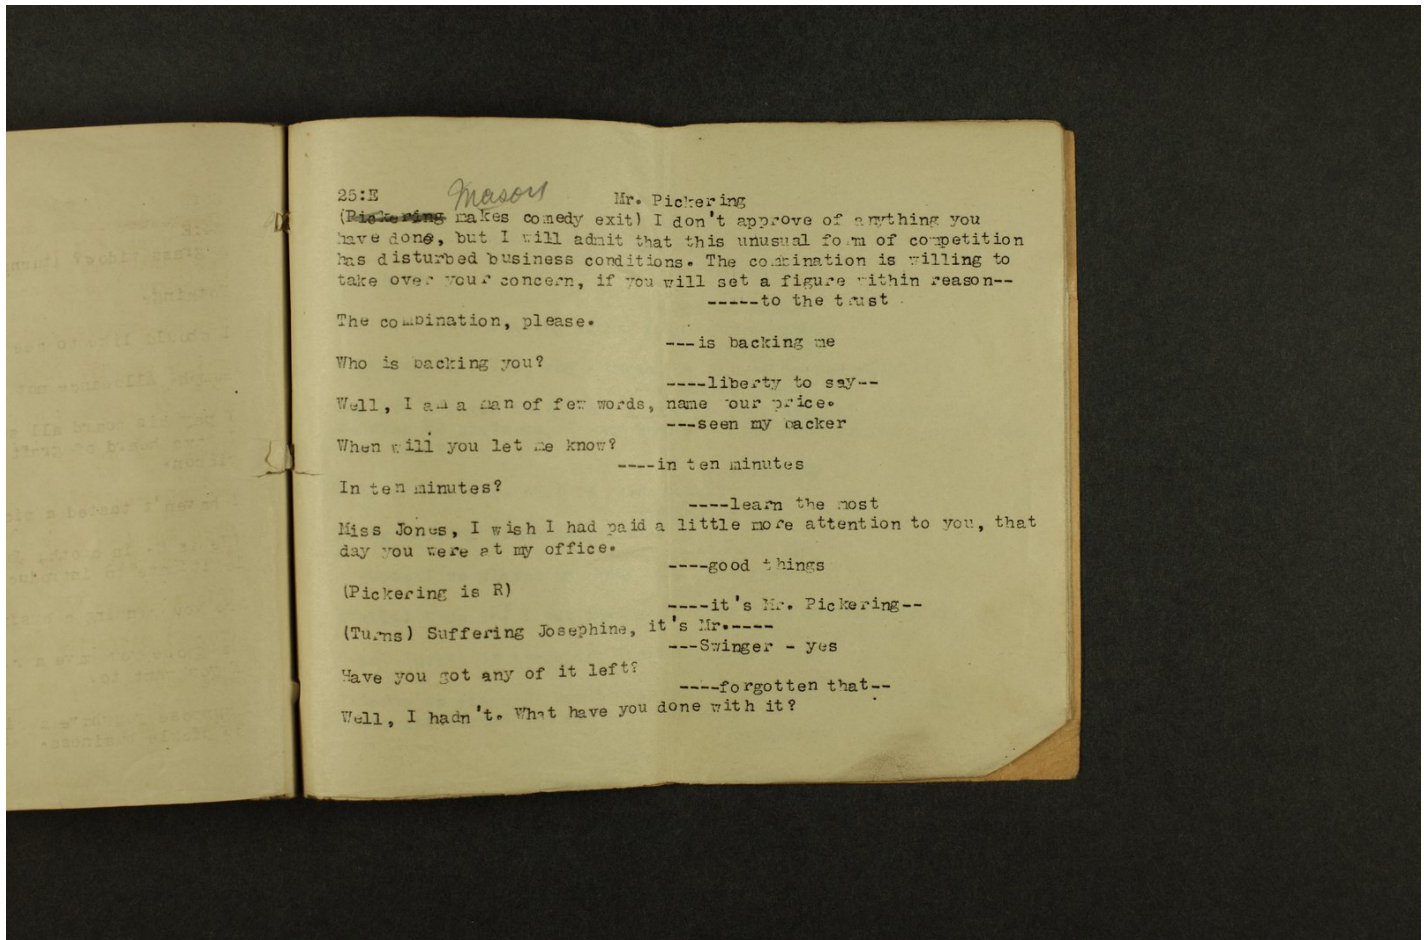 25:E Mason Mr. Pickering
(Pickering makes comedy exit) I don't approve of anything you
have done, but I will admit that this unusual form of competition
has disturbed business conditions. The combination is willing to
take over your concern, if you will set a figure within reason--
-----to the trust
The combination, please.
---is backing me
Who is backing you?
----liberty to say--
Well, I am a man of few words, name your price.
---seen my backer
When will you let me know?
----in ten minutes
In ten minutes?
----learn the most
Miss Jones, I wish I had paid a little more attention to you, that
day you were at my office.
----good things
(Pickering is R)
----it's Mr. Pickering--
(Turns) Suffering Josephine, it's Mr.-----
---Swinger - yes
Have you got any of it left?
----forgotten that--
Well, I hadn't. What have you done with it?